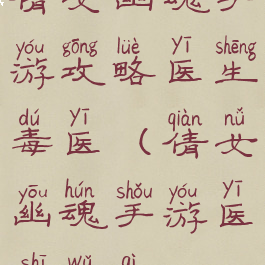 倩女幽魂手
yóu gōng lüè yī shēng
游攻略医生
dú yī qiàn nǚ
毒医(倩女
yōu hún shǒu yóu yī
幽魂手游医
shī wǔ qì